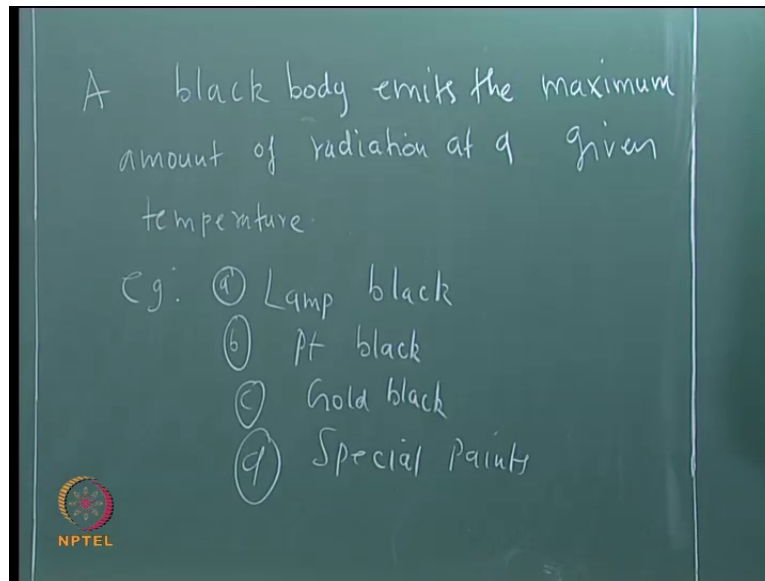 A black body emits the maximum
amount of radiation at a given
temperature.
eg: (a) Lamp black
(b) Pt black
(c) Gold black
(d) Special Paints
NPTEL